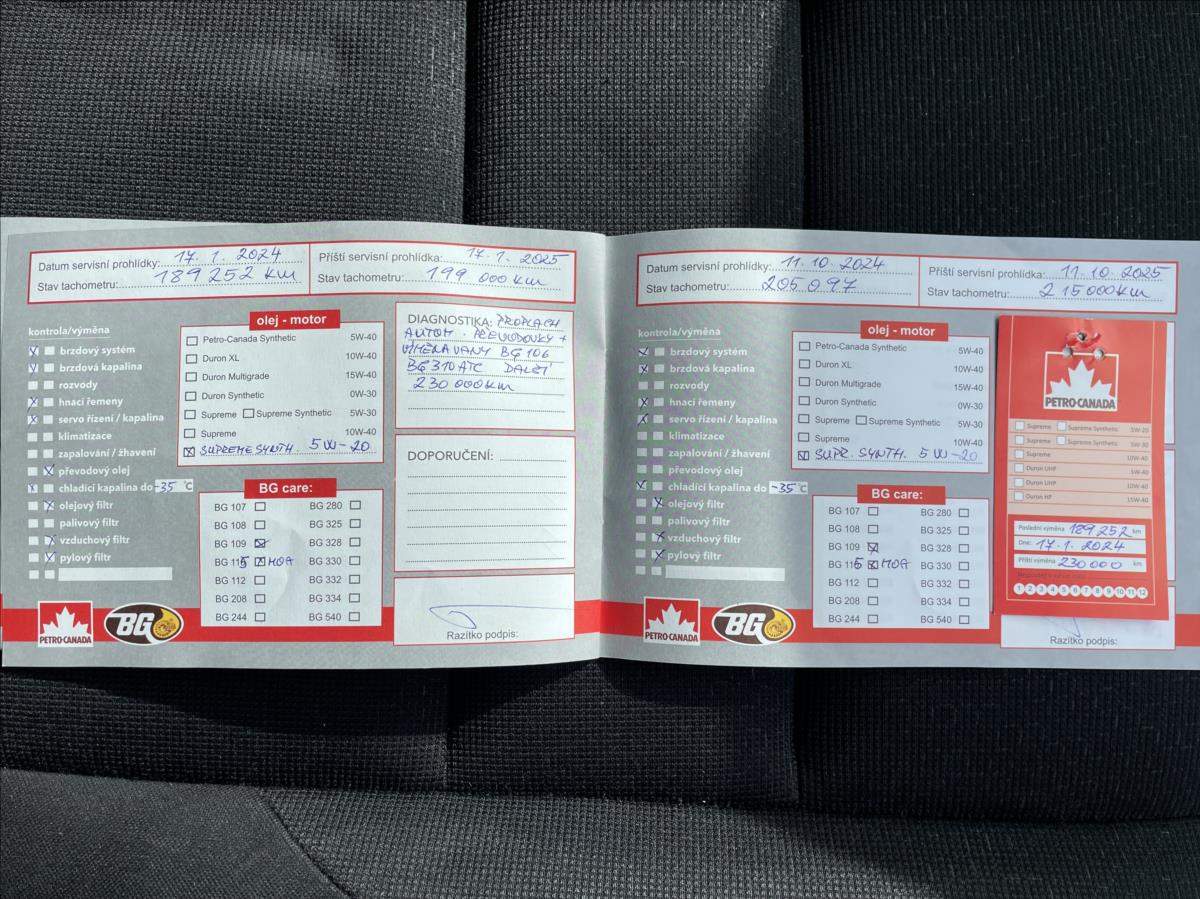 Datum servisní prohlídky: 17. 1. 2024
Stav tachometru: 189 252 km
Příští servisní prohlídka: 17. 1. 2025
Stav tachometru: 199 000 km
kontrola/výměna
brzdový systém
brzdová kapalina
rozvody
hnací řemeny
servo řízení / kapalina
klimatizace
zapalování / žhavení
převodový olej
chladící kapalina do -35 °C
olejový filtr
palivový filtr
vzduchový filtr
pylový filtr
olej - motor
Petro-Canada Synthetic 5W-40
Duron XL 10W-40
Duron Multigrade 15W-40
Duron Synthetic 0W-30
Supreme Supreme Synthetic 5W-30
Supreme 10W-40
SUPREME SYNTH. 5W-20
BG care:
BG 107 BG 280
BG 108 BG 325
BG 109 BG 328
BG 115 MOA BG 330
BG 112 BG 332
BG 208 BG 334
BG 244 BG 540
DIAGNOSTIKA: PROPLACH
AUTOM. PŘEVODOVKY +
VÝMĚNA VANY BG 106
BG 310 ATC DALŠÍ
230 000km
DOPORUČENÍ:
Razítko podpis:
PETRO-CANADA
BG
Datum servisní prohlídky: 11. 10. 2024
Stav tachometru: 205 097
Příští servisní prohlídka: 11. 10. 2025
Stav tachometru: 215000km
kontrola/výměna
brzdový systém
brzdová kapalina
rozvody
hnací řemeny
servo řízení / kapalina
klimatizace
zapalování / žhavení
převodový olej
chladící kapalina do -35 °C
olejový filtr
palivový filtr
vzduchový filtr
pylový filtr
olej - motor
Petro-Canada Synthetic 5W-40
Duron XL 10W-40
Duron Multigrade 15W-40
Duron Synthetic 0W-30
Supreme Supreme Synthetic 5W-30
Supreme 10W-40
SUPR. SYNTH. 5W-20
BG care:
BG 107 BG 280
BG 108 BG 325
BG 109 BG 328
BG 115 MOA BG 330
BG 112 BG 332
BG 208 BG 334
BG 244 BG 540
PETRO-CANADA
BG
PETRO-CANADA
Supreme Supreme Synthetic 5W-20
Supreme Supreme Synthetic 5W-30
Supreme 10W-40
Duron UHP 5W-40
Duron UHP 10W-40
Duron HP 15W-40
Poslední výměna 189 252 km
Dne: 17. 1. 2024
Příští výměna 230 000 km
1 2 3 4 5 6 7 8 9 10 11 12
Razítko podpis: